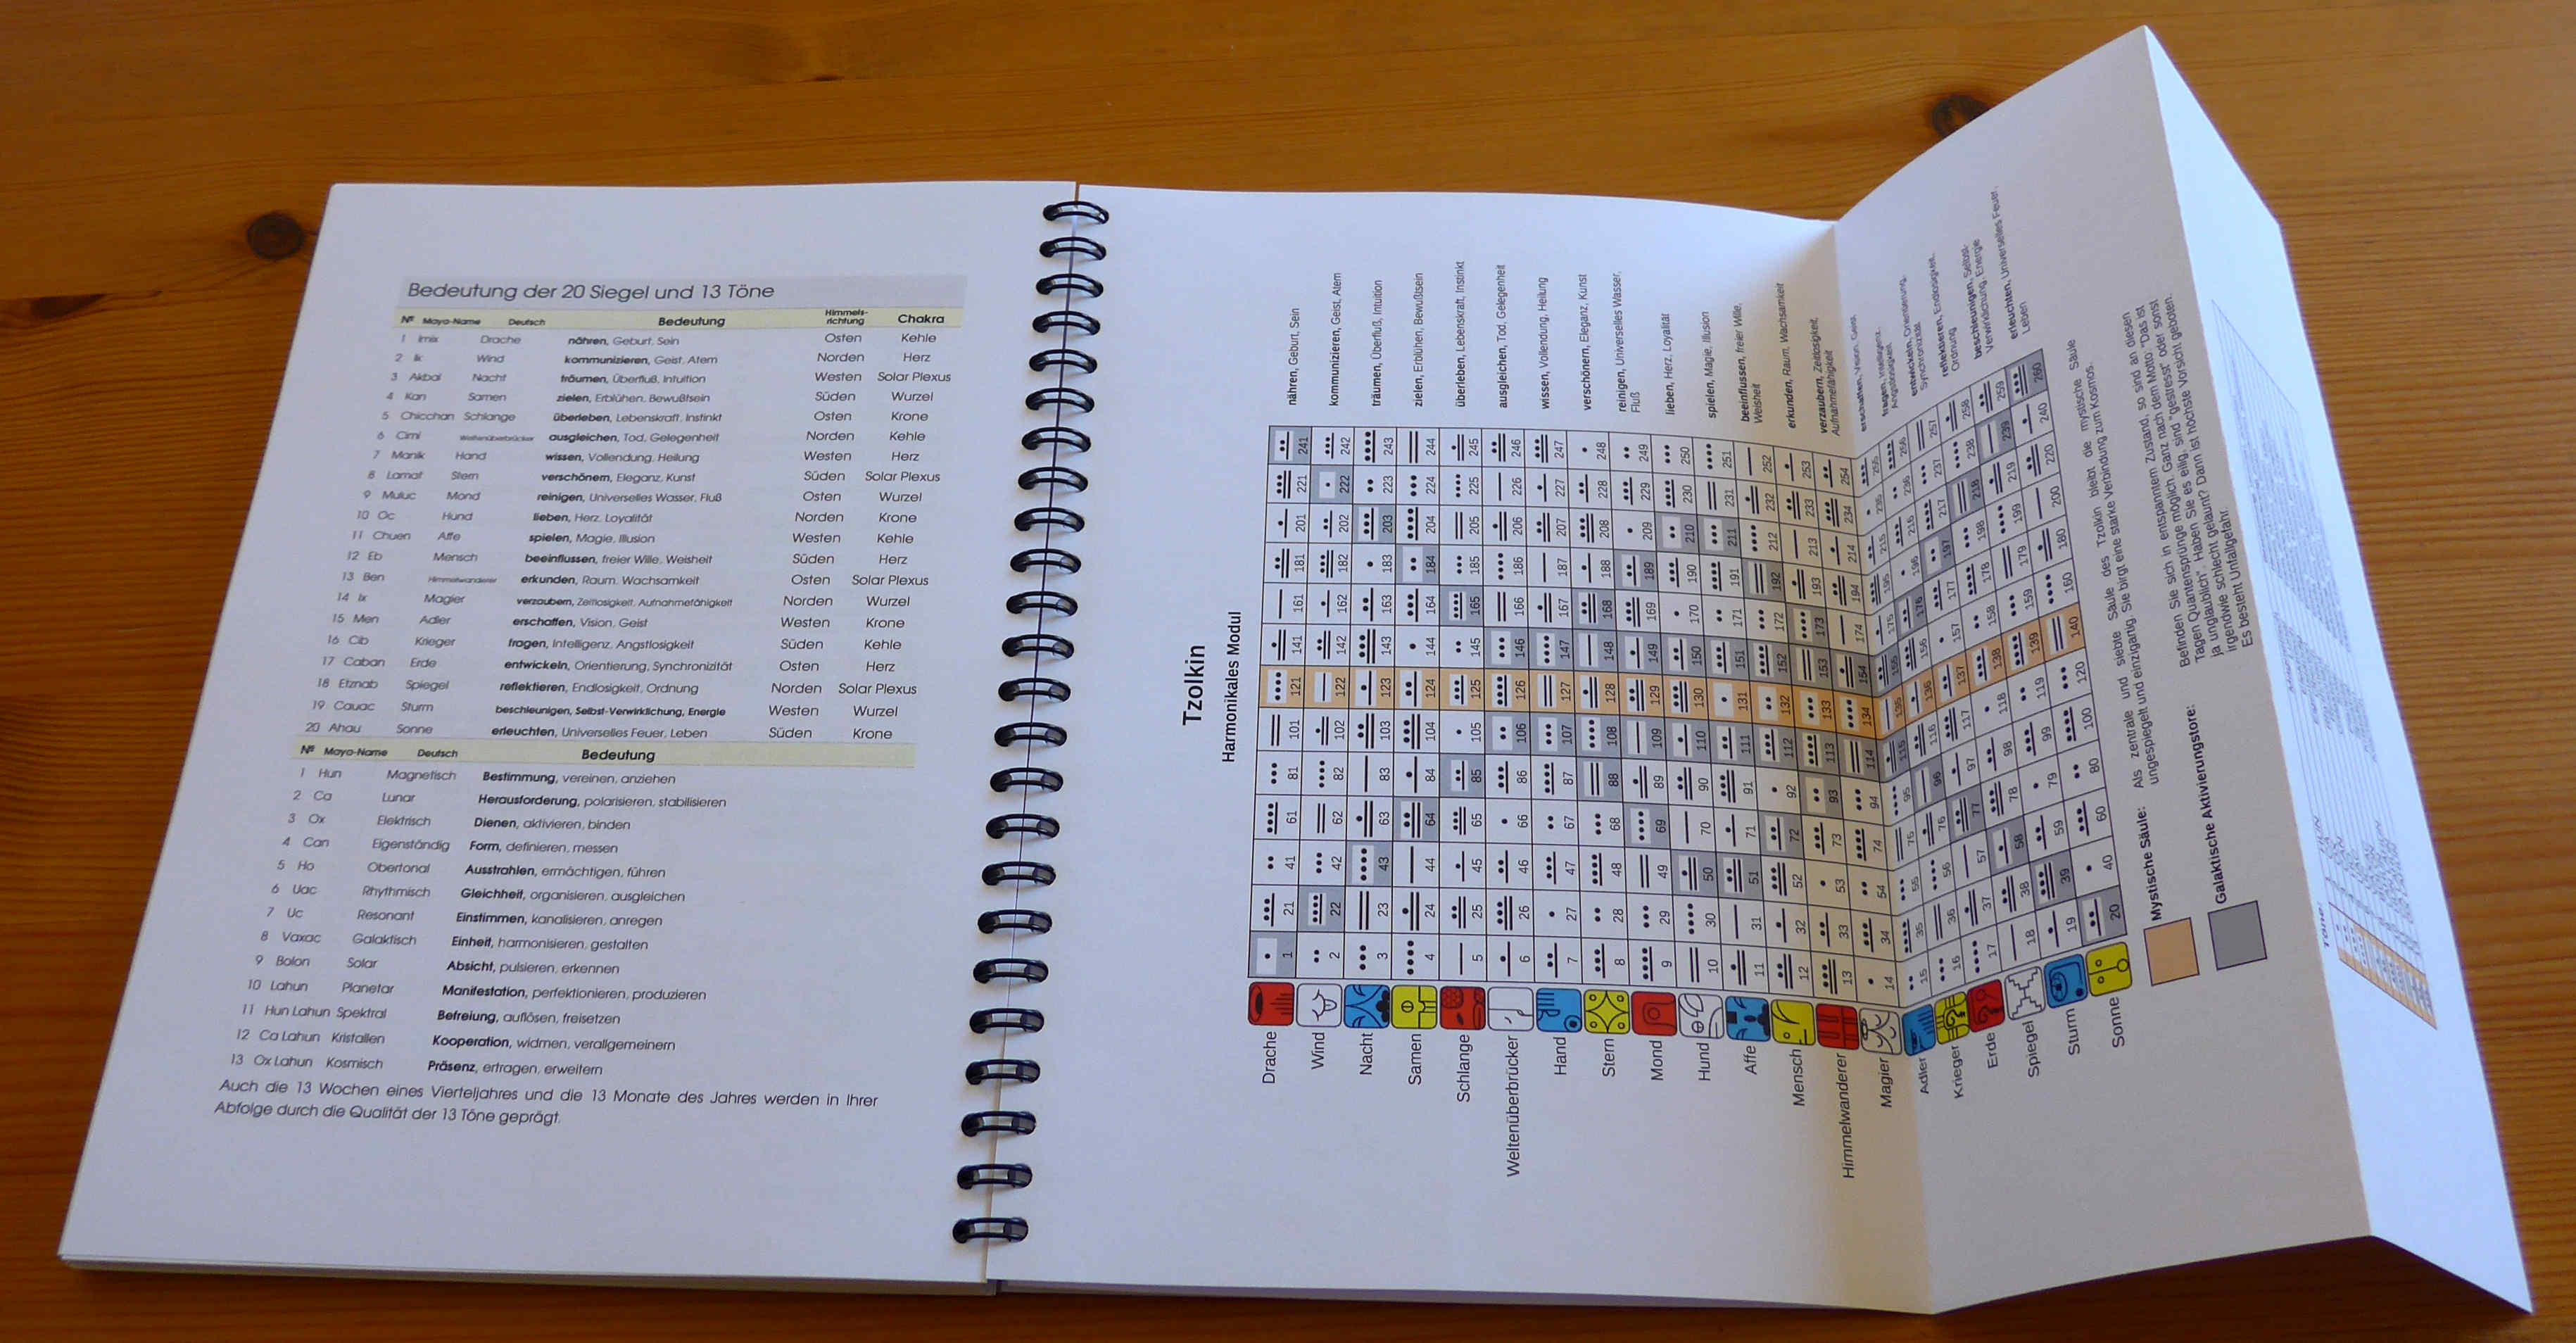 Bedeutung der 20 Siegel und 13 Töne
Nº Maya-Name Deutsch Bedeutung Himmels-richtung Chakra
1 Imix Drache nähren, Geburt, Sein Osten Kehle
2 Ik Wind kommunizieren, Geist, Atem Norden Herz
3 Akbal Nacht träumen, Überfluß, Intuition Westen Solar Plexus
4 Kan Samen zielen, Erblühen, Bewußtsein Süden Wurzel
5 Chicchan Schlange überleben, Lebenskraft, Instinkt Osten Krone
6 Cimi Weltenüberbrücker ausgleichen, Tod, Gelegenheit Norden Kehle
7 Manik Hand wissen, Vollendung, Heilung Westen Herz
8 Lamat Stern verschönern, Eleganz, Kunst Süden Solar Plexus
9 Muluc Mond reinigen, Universelles Wasser, Fluß Osten Wurzel
10 Oc Hund lieben, Herz, Loyalität Norden Krone
11 Chuen Affe spielen, Magie, Illusion Westen Kehle
12 Eb Mensch beeinflussen, freier Wille, Weisheit Süden Herz
13 Ben Himmelswanderer erkunden, Raum, Wachsamkeit Osten Solar Plexus
14 Ix Magier verzaubern, Zeitlosigkeit, Aufnahmefähigkeit Norden Wurzel
15 Men Adler erschaffen, Vision, Geist Westen Krone
16 Cib Krieger fragen, Intelligenz, Angstlosigkeit Süden Kehle
17 Caban Erde entwickeln, Orientierung, Synchronizität Osten Herz
18 Etznab Spiegel reflektieren, Endlosigkeit, Ordnung Norden Solar Plexus
19 Cauac Sturm beschleunigen, Selbst-Verwirklichung, Energie Westen Wurzel
20 Ahau Sonne erleuchten, Universelles Feuer, Leben Süden Krone
Nº Maya-Name Deutsch Bedeutung
1 Hun Magnetisch Bestimmung, vereinen, anziehen
2 Ca Lunar Herausforderung, polarisieren, stabilisieren
3 Ox Elektrisch Dienen, aktivieren, binden
4 Can Eigenständig Form, definieren, messen
5 Ho Obertonal Ausstrahlen, ermächtigen, führen
6 Uac Rhythmisch Gleichheit, organisieren, ausgleichen
7 Uc Resonant Einstimmen, kanalisieren, anregen
8 Vaxac Galaktisch Einheit, harmonisieren, gestalten
9 Bolon Solar Absicht, pulsieren, erkennen
10 Lahun Planetar Manifestation, perfektionieren, produzieren
11 Hun Lahun Spektral Befreiung, auflösen, freisetzen
12 Ca Lahun Kristallen Kooperation, widmen, verallgemeinern
13 Ox Lahun Kosmisch Präsenz, ertragen, erweitern
Auch die 13 Wochen eines Vierteljahres und die 13 Monate des Jahres werden in Ihrer
Abfolge durch die Qualität der 13 Töne geprägt.
Tzolkin
Harmonikales Modul
Drache 1 21 41 61 81 101 121 141 161 181 201 221 241 nähren, Geburt, Sein
Wind 2 22 42 62 82 102 122 142 162 182 202 222 242 kommunizieren, Geist, Atem
Nacht 3 23 43 63 83 103 123 143 163 183 203 223 243 träumen, Überfluß, Intuition
Samen 4 24 44 64 84 104 124 144 164 184 204 224 244 zielen, Erblühen, Bewußtsein
Schlange 5 25 45 65 85 105 125 145 165 185 205 225 245 überleben, Lebenskraft, Instinkt
Weltenüberbrücker 6 26 46 66 86 106 126 146 166 186 206 226 246 ausgleichen, Tod, Gelegenheit
Hand 7 27 47 67 87 107 127 147 167 187 207 227 247 wissen, Vollendung, Heilung
Stern 8 28 48 68 88 108 128 148 168 188 208 228 248 verschönern, Eleganz, Kunst
Mond 9 29 49 69 89 109 129 149 169 189 209 229 249 reinigen, Universelles Wasser,
Fluß
Hund 10 30 50 70 90 110 130 150 170 190 210 230 250 lieben, Herz, Loyalität
Affe 11 31 51 71 91 111 131 151 171 191 211 231 251 spielen, Magie, Illusion
Mensch 12 32 52 72 92 112 132 152 172 192 212 232 252 beeinflussen, freier Wille,
Weisheit
Himmelwanderer 13 33 53 73 93 113 133 153 173 193 213 233 253 erkunden, Raum, Wachsamkeit
Magier 14 34 54 74 94 114 134 154 174 194 214 234 254 verzaubern, Zeitlosigkeit,
Aufnahmefähigkeit
Adler 15 35 55 75 95 115 135 155 175 195 215 235 255 erschaffen, Vision, Geist
Krieger 16 36 56 76 96 116 136 156 176 196 216 236 256 fragen, Intelligenz,
Angstlosigkeit
Erde 17 37 57 77 97 117 137 157 177 197 217 237 257 entwickeln, Orientierung,
Synchronizität
Spiegel 18 38 58 78 98 118 138 158 178 198 218 238 258 reflektieren, Endlosigkeit,
Ordnung
Sturm 19 39 59 79 99 119 139 159 179 199 219 239 259 beschleunigen, Selbst-
Verwirklichung, Energie
Sonne 20 40 60 80 100 120 140 160 180 200 220 240 260 erleuchten, Universelles Feuer,
Leben
Mystische Säule: Als zentrale und siebte Säule des Tzolkin bleibt die mystische Säule
ungespiegelt und einzigartig. Sie birgt eine starke Verbindung zum Kosmos.
Galaktische Aktivierungstore: Befinden Sie sich in entspanntem Zustand, so sind an diesen
Tagen Quantensprünge möglich. Ganz nach dem Motto: "Das ist
ja unglaublich". Haben Sie es eilig, sind "gestresst" oder sonst
irgendwie schlecht gelaunt? Dann ist höchste Vorsicht geboten.
Es besteht Unfallgefahr.
Töne: